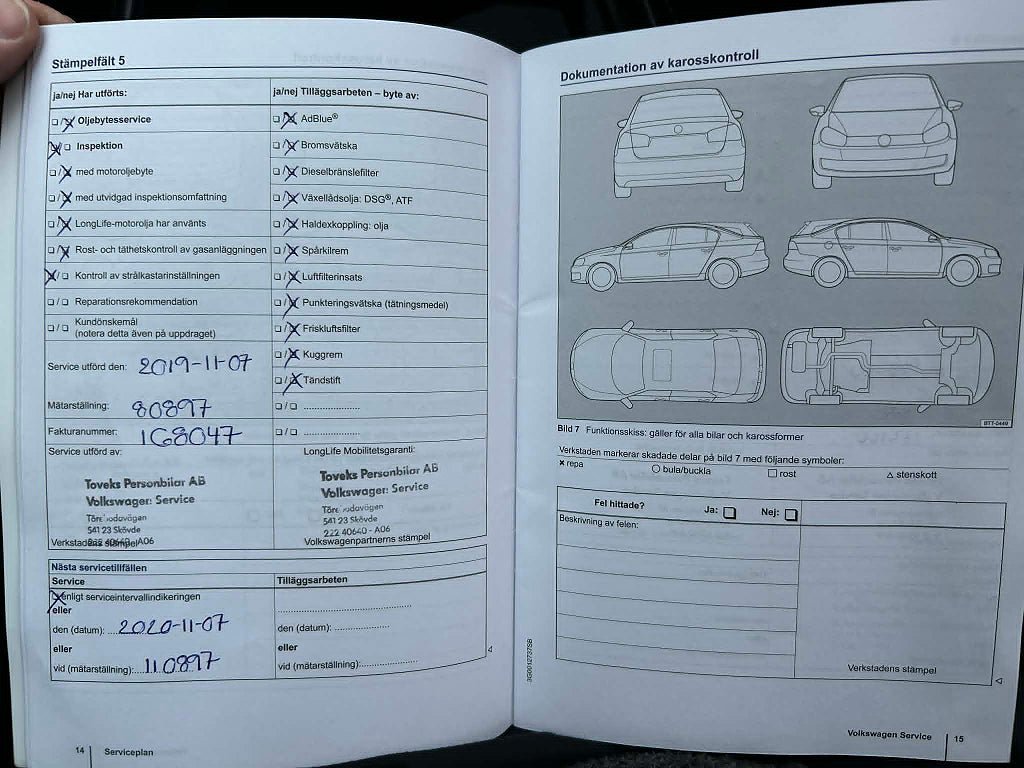 Stämpelfält 5
ja/nej Har utförts:
☐/☒ Oljebytesservice
☒/☐ Inspektion
☐/☒ med motoroljebyte
☐/☒ med utvidgad inspektionsomfattning
☐/☒ LongLife-motorolja har använts
☐/☒ Rost- och täthetskontroll av gasanläggningen
☒/☐ Kontroll av strålkastarinställningen
☐/☐ Reparationsrekommendation
☐/☐ Kundönskemål
(notera detta även på uppdraget)
Service utförd den: 2019-11-07
Mätarställning: 80897
Fakturanummer: 168047
Service utförd av:
Toveks Personbilar AB
Volkswagen Service
541 23 Skövde
222 40640 - A06
Verkstadens stämpel
ja/nej Tilläggsarbeten – byte av:
☐/☒ AdBlue®
☐/☒ Bromsvätska
☐/☒ Dieselbränslefilter
☐/☒ Växellådsolja: DSG®, ATF
☐/☒ Haldexkoppling: olja
☐/☒ Spårkilrem
☐/☒ Luftfilterinsats
☐/☒ Punkteringsvätska (tätningsmedel)
☐/☒ Friskluftsfilter
☐/☒ Kuggrem
☐/☒ Tändstift
☐/☐ ....................
☐/☐ ....................
LongLife Mobilitetsgaranti:
Toveks Personbilar AB
Volkswagen Service
541 23 Skövde
222 40640 - A06
Volkswagenpartnerns stämpel
Nästa servicetillfällen
Service
☒ enligt serviceintervallindikeringen
eller
den (datum): 2020-11-07
eller
vid (mätarställning): 110897
Tilläggsarbeten
den (datum): ....................
eller
vid (mätarställning): ....................
14 Serviceplan
Dokumentation av karosskontroll
BTT-0449
Bild 7 Funktionsskiss: gäller för alla bilar och karossformer
Verkstaden markerar skadade delar på bild 7 med följande symboler:
× repa ○ bula/buckla □ rost △ stenskott
Fel hittade? Ja: ☐ Nej: ☐
Beskrivning av felen:
Verkstadens stämpel
3G0012737SB
Volkswagen Service 15